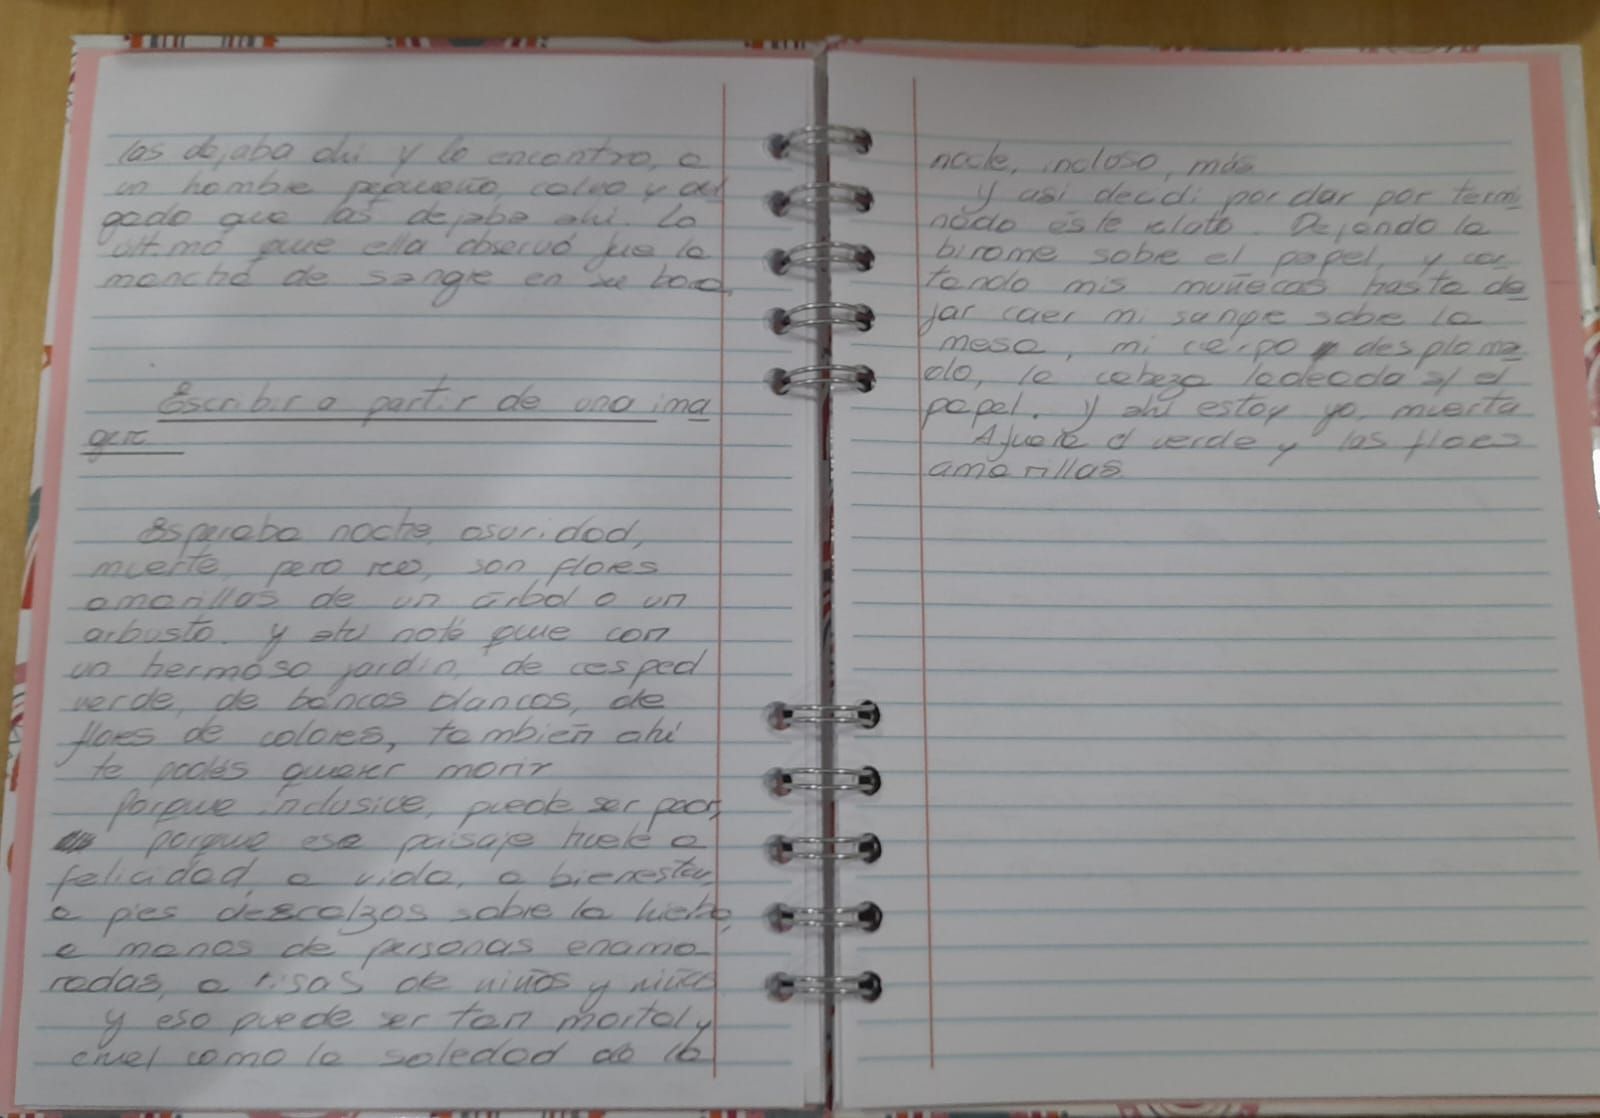 las dejaba ahi y lo encontro, a
un hombre pequeño, calvo y del
gado que las dejaba ahi. Lo
ultimo que ella observó fue la
mancha de sangre en su boca.
Escribir a partir de una ima
gen
Esperaba noche, oscuridad,
muerte, pero no, son flores
amarillas de un árbol o un
arbusto. Y ahi noté que con
un hermoso jardin, de cesped
verde, de bancos blancos, de
flores de colores, también ahi
te podés querer morir
Porque inclusive, puede ser peor,
porque ese paisaje huele a
felicidad, a vida, a bienestar,
a pies descalzos sobre la hierba,
a manos de personas enamo
radas, a risas de niños y niñas
y eso puede ser tan mortal y
cruel como la soledad de la
noche, incluso, más
Y asi decidi por dar por termi
nado éste relato. Dejando la
birome sobre el papel, y cor
tando mis muñecas hasta de
jar caer mi sangre sobre la
mesa, mi cuerpo desploma
do, la cabeza ladeada s/ el
papel. Y ahi estoy yo, muerta
Afuera el verde y las flores
amarillas